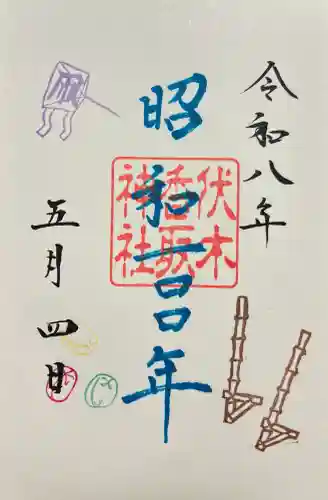 令和八年
昭和
年
伏木
香取
神社
五月四日